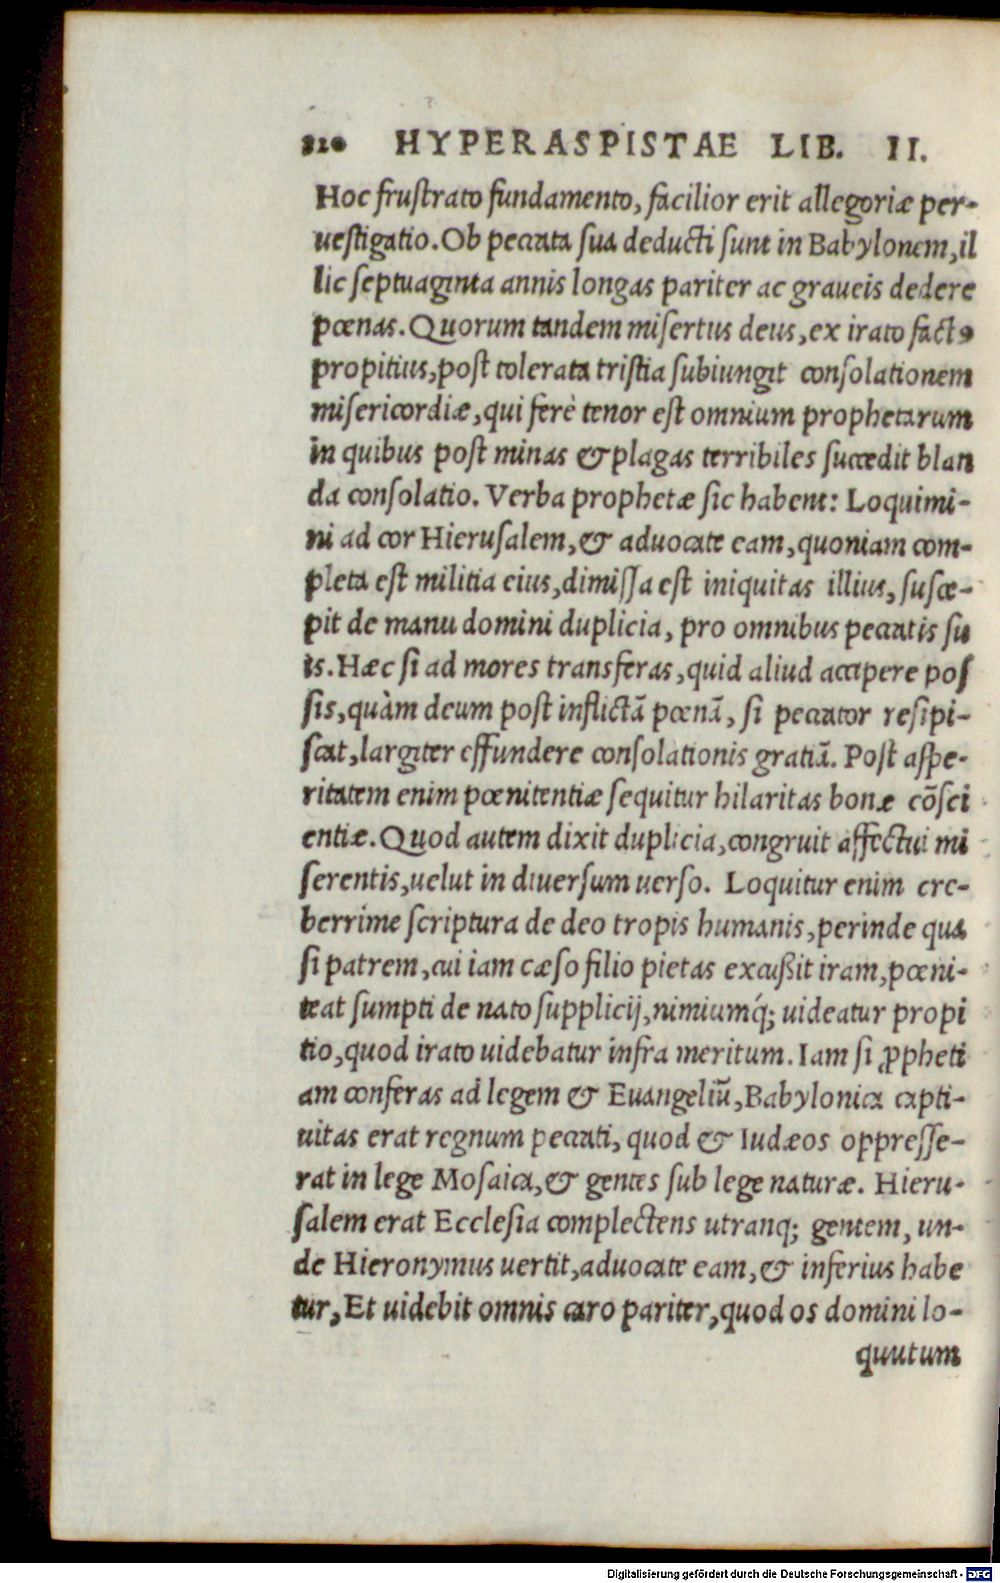 320 HYPERASPISTAE LIB. II.
Hoc frustrato fundamento, facilior erit allegoriæ per-
uestigatio. Ob peccata sua deducti sunt in Babylonem, il
lic septuaginta annis longas pariter ac graueis dedere
pœnas. Quorum tandem misertus deus, ex irato facto
propitius, post tolerata tristia subiungit consolationem
misericordiæ, qui ferè tenor est omnium prophetarum
in quibus post minas & plagas terribiles succedit blan
da consolatio. Verba prophetæ sic habent: Loquimi-
ni ad cor Hierusalem, & aduocate eam, quoniam com-
pleta est militia eius, dimissa est iniquitas illius, susce-
pit de manu domini duplicia, pro omnibus peccatis su
is. Hæc si ad mores transferas, quid aliud accipere pos
sis, quàm deum post inflictā pœnā, si peccator resipi-
scat, largiter effundere consolationis gratiā. Post aspe-
ritatem enim pœnitentiæ sequitur hilaritas bonæ cōsci
entiæ. Quod autem dixit duplicia, congruit affectui mi
serentis, uelut in diuersum uerso. Loquitur enim cre-
berrime scriptura de deo tropis humanis, perinde qua
si patrem, cui iam cæso filio pietas excußit iram, pœni-
teat sumpti de nato supplicij, nimiumq́; uideatur propi
tio, quod irato uidebatur infra meritum. Iam si ꝓpheti
am conferas ad legem & Euangeliū, Babylonica capti-
uitas erat regnum peccati, quod & Iudæos oppresse-
rat in lege Mosaica, & gentes sub lege naturæ. Hieru-
salem erat Ecclesia complectens utranq; gentem, un-
de Hieronymus uertit, aduocate eam, & inferius habe
tur, Et uidebit omnis caro pariter, quod os domini lo-
quutum
Digitalisierung gefördert durch die Deutsche Forschungsgemeinschaft - DFG